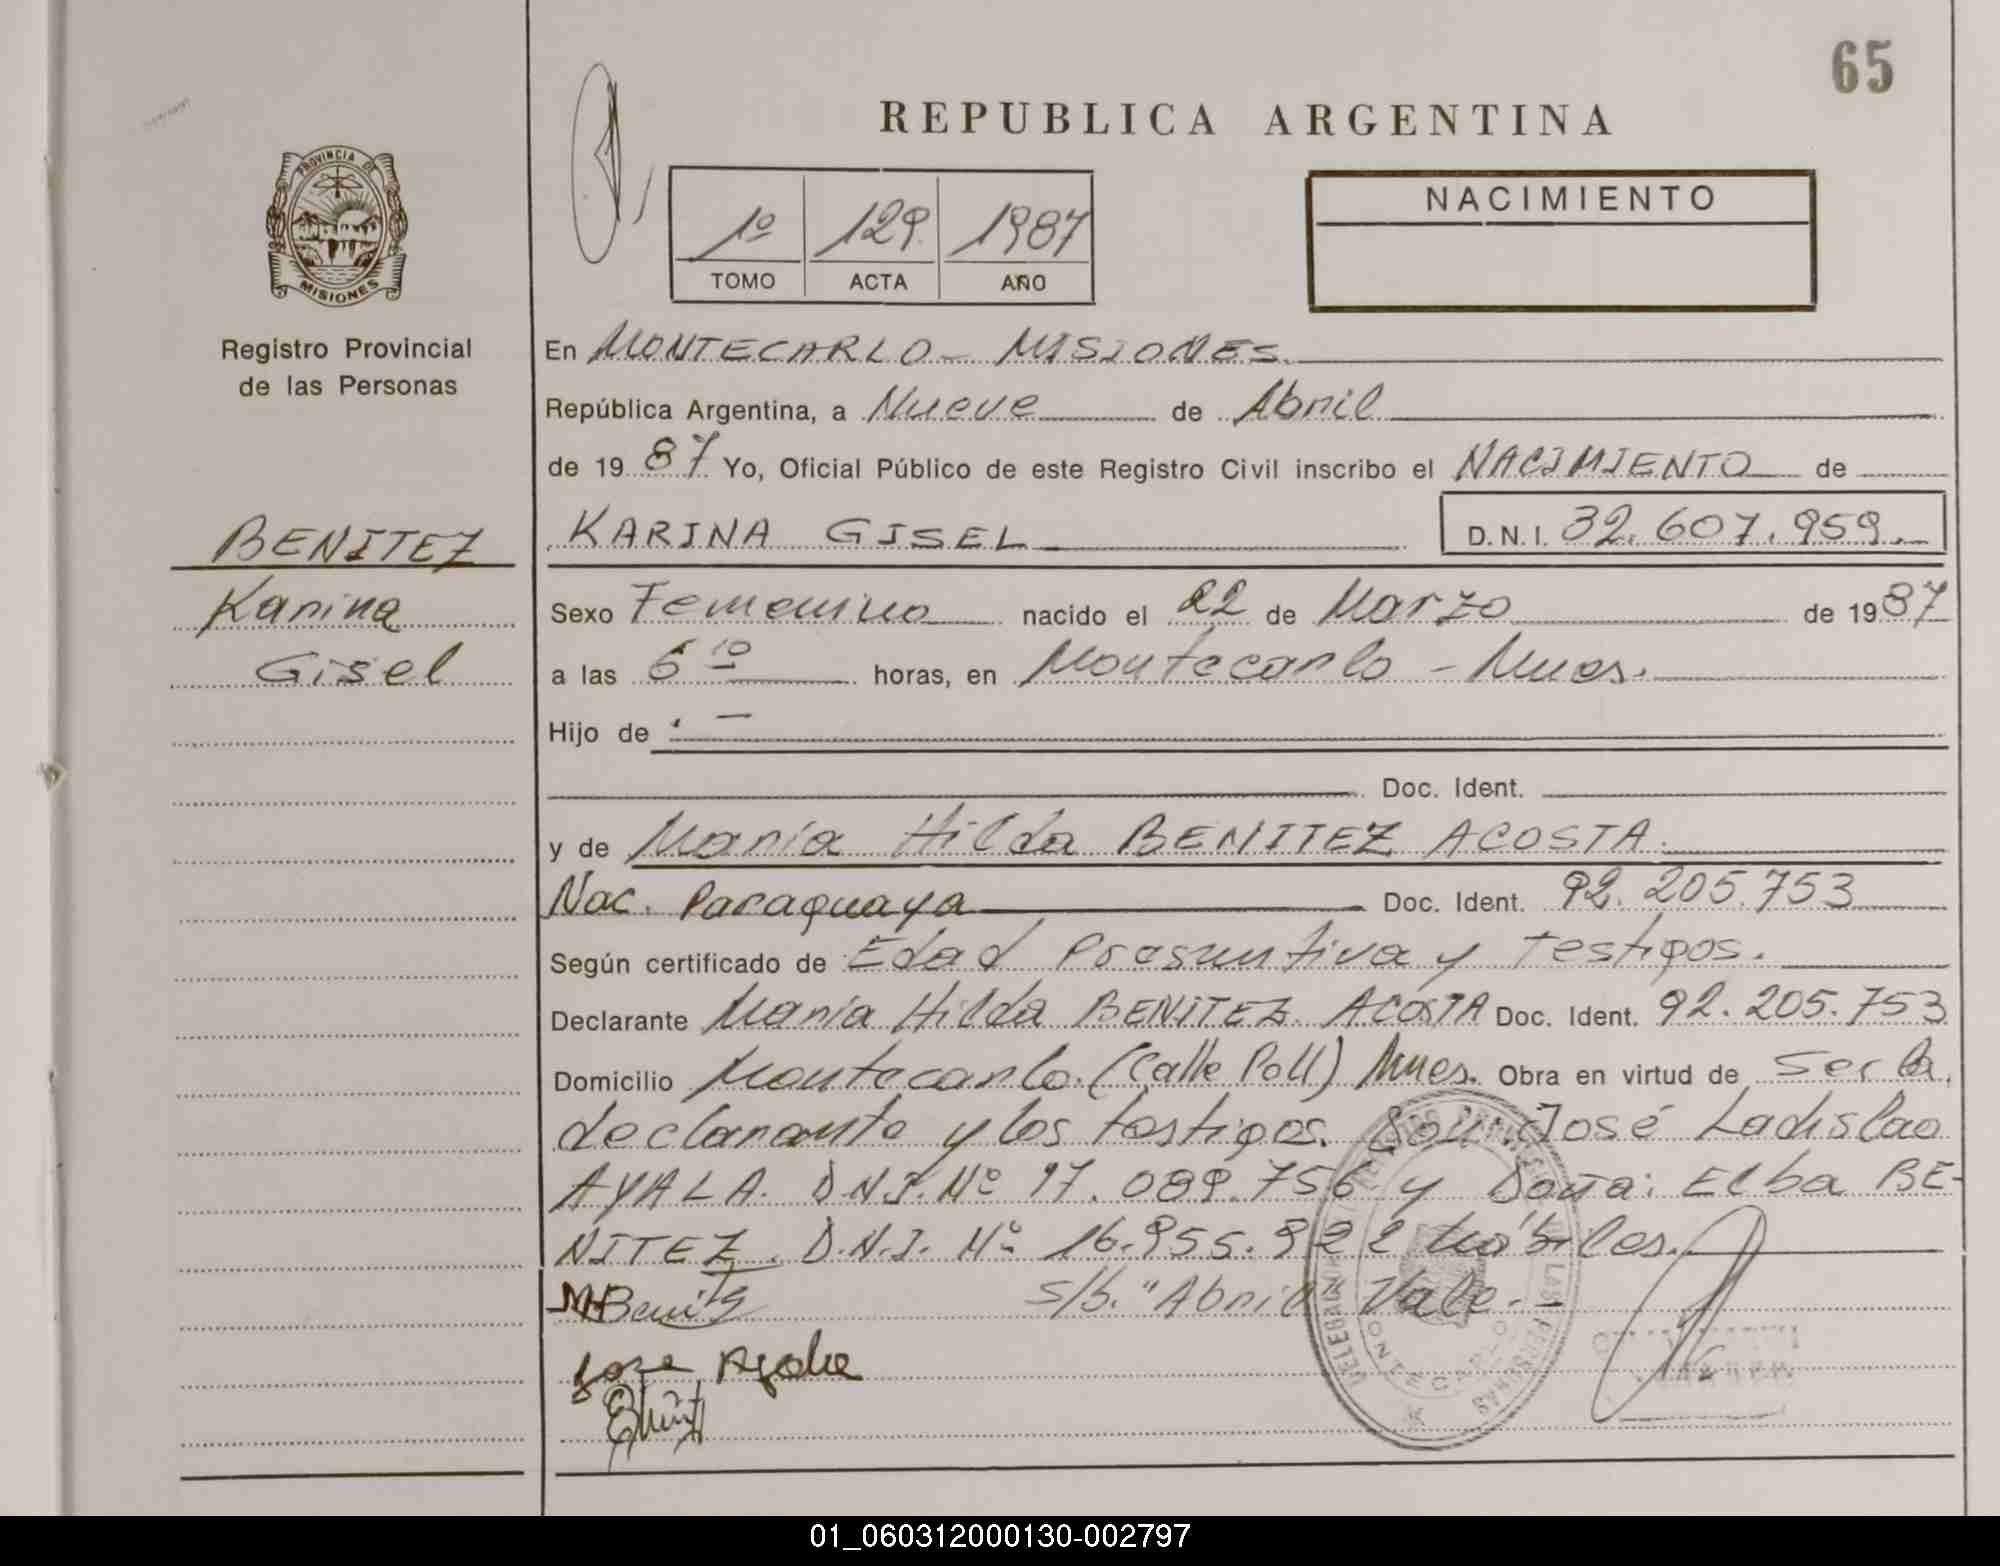 65
REPUBLICA ARGENTINA
PROVINCIA DE
MISIONES
Registro Provincial
de las Personas
1º 129. 1987
TOMO ACTA AÑO
NACIMIENTO
En MONTECARLO - MISIONES.
República Argentina, a Nueve de Abril
de 19 87 Yo, Oficial Público de este Registro Civil inscribo el NACIMIENTO de
KARINA GISEL D.N.I. 32.607.959.
BENITEZ
Karina
Gisel
Sexo Femenino nacido el 22 de Marzo de 19 87
a las 6 10 horas, en Montecarlo - Mnes.
Hijo de . -
Doc. Ident.
y de María Hilda BENITEZ ACOSTA.
Nac. Paraguaya Doc. Ident. 92.205.753
Según certificado de Edad Presuntiva y testigos.
Declarante María Hilda BENITEZ ACOSTA Doc. Ident. 92.205.753
Domicilio Montecarlo. (Calle Poll) Mnes. Obra en virtud de ser la
declarante y los testigos. Son: José Ladislao
AYALA. D.N.I. Nº 17.089.756 y Doña: Elba BE-
NITEZ. D.N.I. Nº 16.955.922 hábiles.
s/b. "Abril" Vale. -
M Benitz
Jose Ayala
01_060312000130-002797